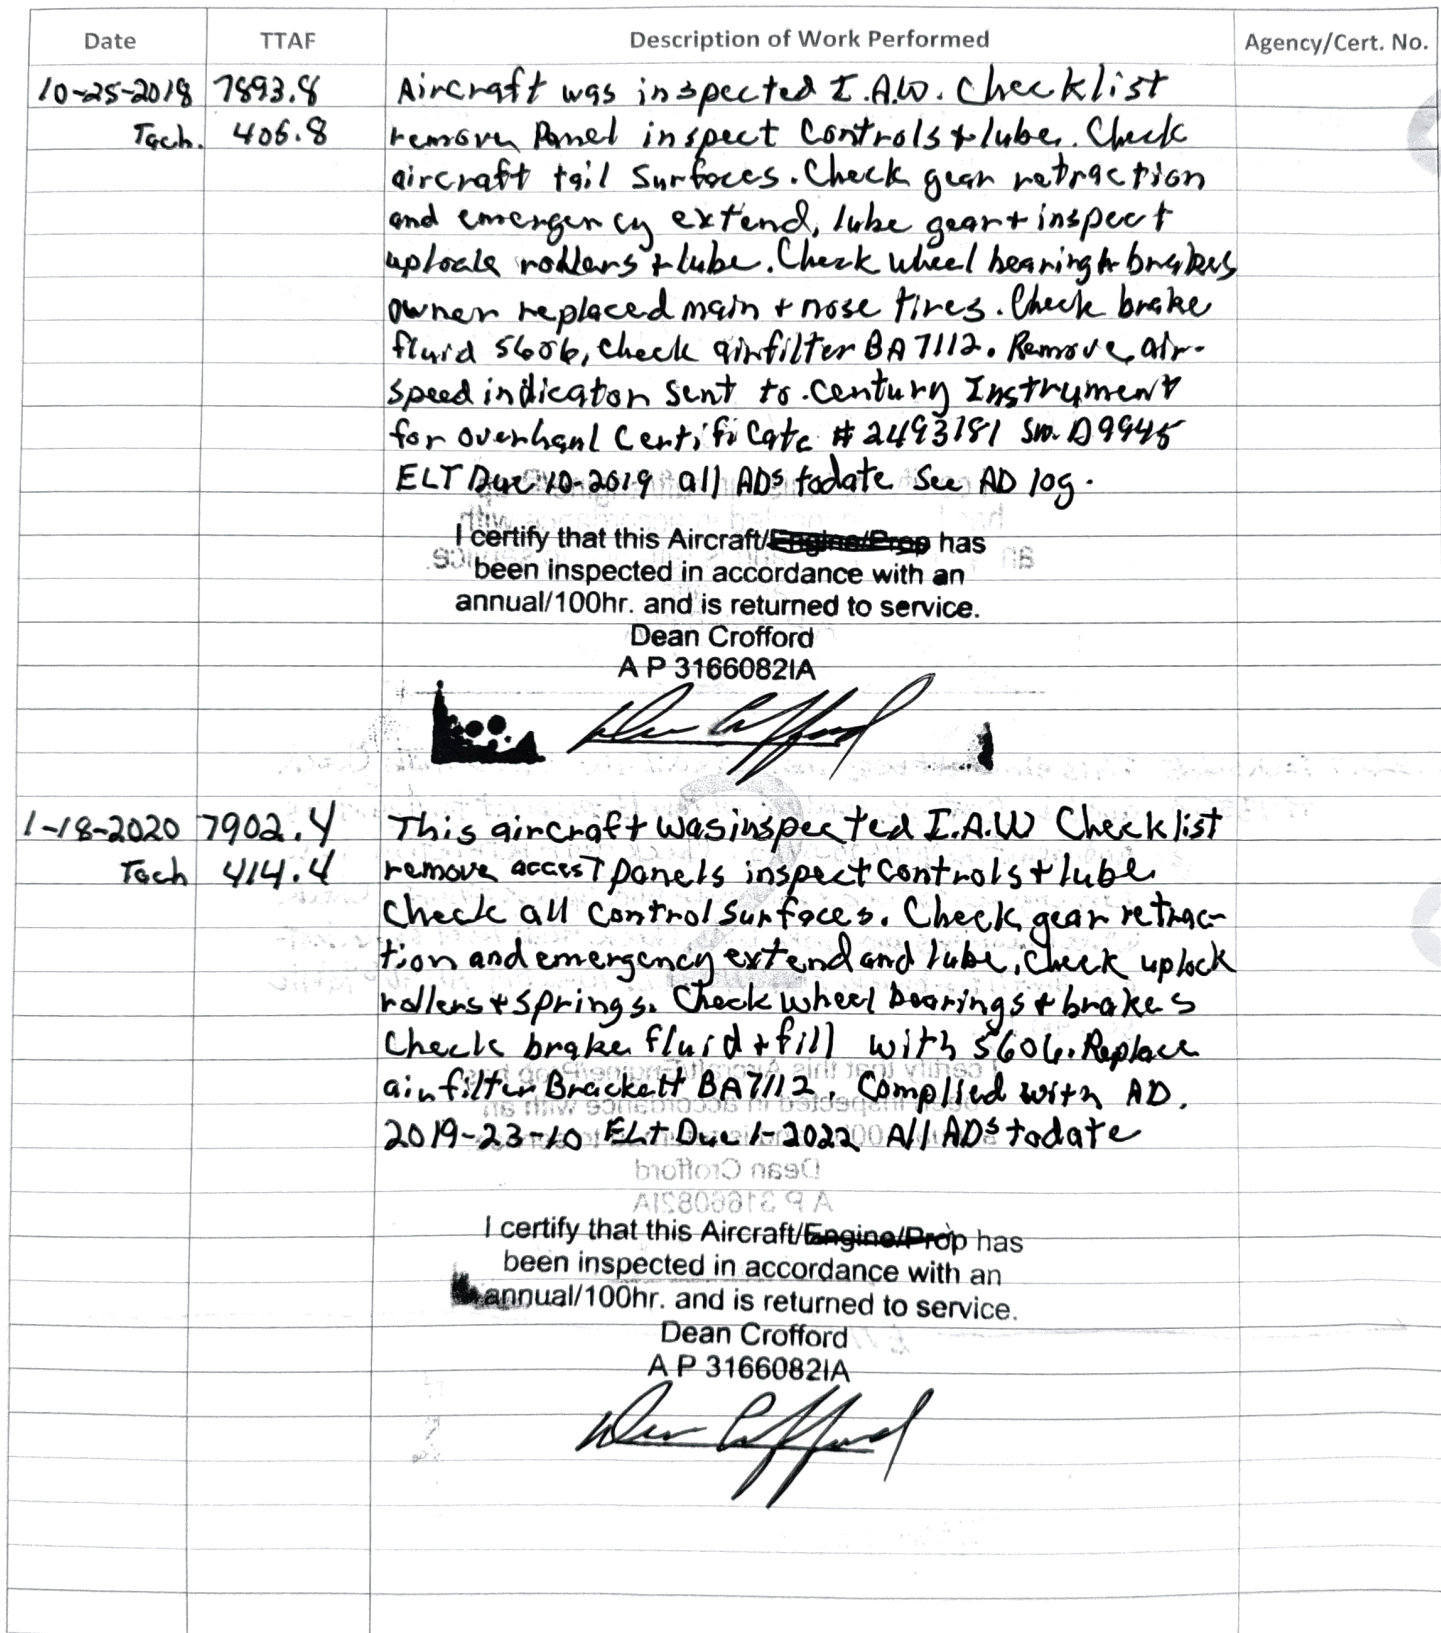 Date TTAF Description of Work Performed Agency/Cert. No.
10-25-2018 7893.8 Aircraft was inspected I.A.W. Checklist
Tach. 406.8 remove Panel inspect Controls + lube. Check
aircraft tail Surfaces. Check gear retraction
and emergency extend, lube gear + inspect
rollers + lube. Check wheel bearing + brakes
owner replaced main + nose tires. Check brake
fluid 5606, check airfilter BA7112. Remove air-
speed indicator sent to Century Instrument
for overhaul Certificate # 2493181 D9945
ELT Due 10-2019 all ADs todate See AD log.
I certify that this Aircraft/Engine/Prop has
been inspected in accordance with an
annual/100hr. and is returned to service.
Dean Crofford
A P 3166082IA
1-18-2020 7902.4 This aircraft was inspected I.A.W Checklist
Tach 414.4 remove access panels inspect controls + lube
Check all control surfaces. Check gear retrac-
tion and emergency extend and lube, Check uplock
rollers + springs. Check wheel bearings + brakes
Check brake fluid + fill with 5606. Replace
airfilter Brackett BA7112. Complied with AD.
2019-23-10 ELT Due 1-2022 All ADs todate
I certify that this Aircraft/Engine/Prop has
been inspected in accordance with an
annual/100hr. and is returned to service.
Dean Crofford
A P 3166082IA